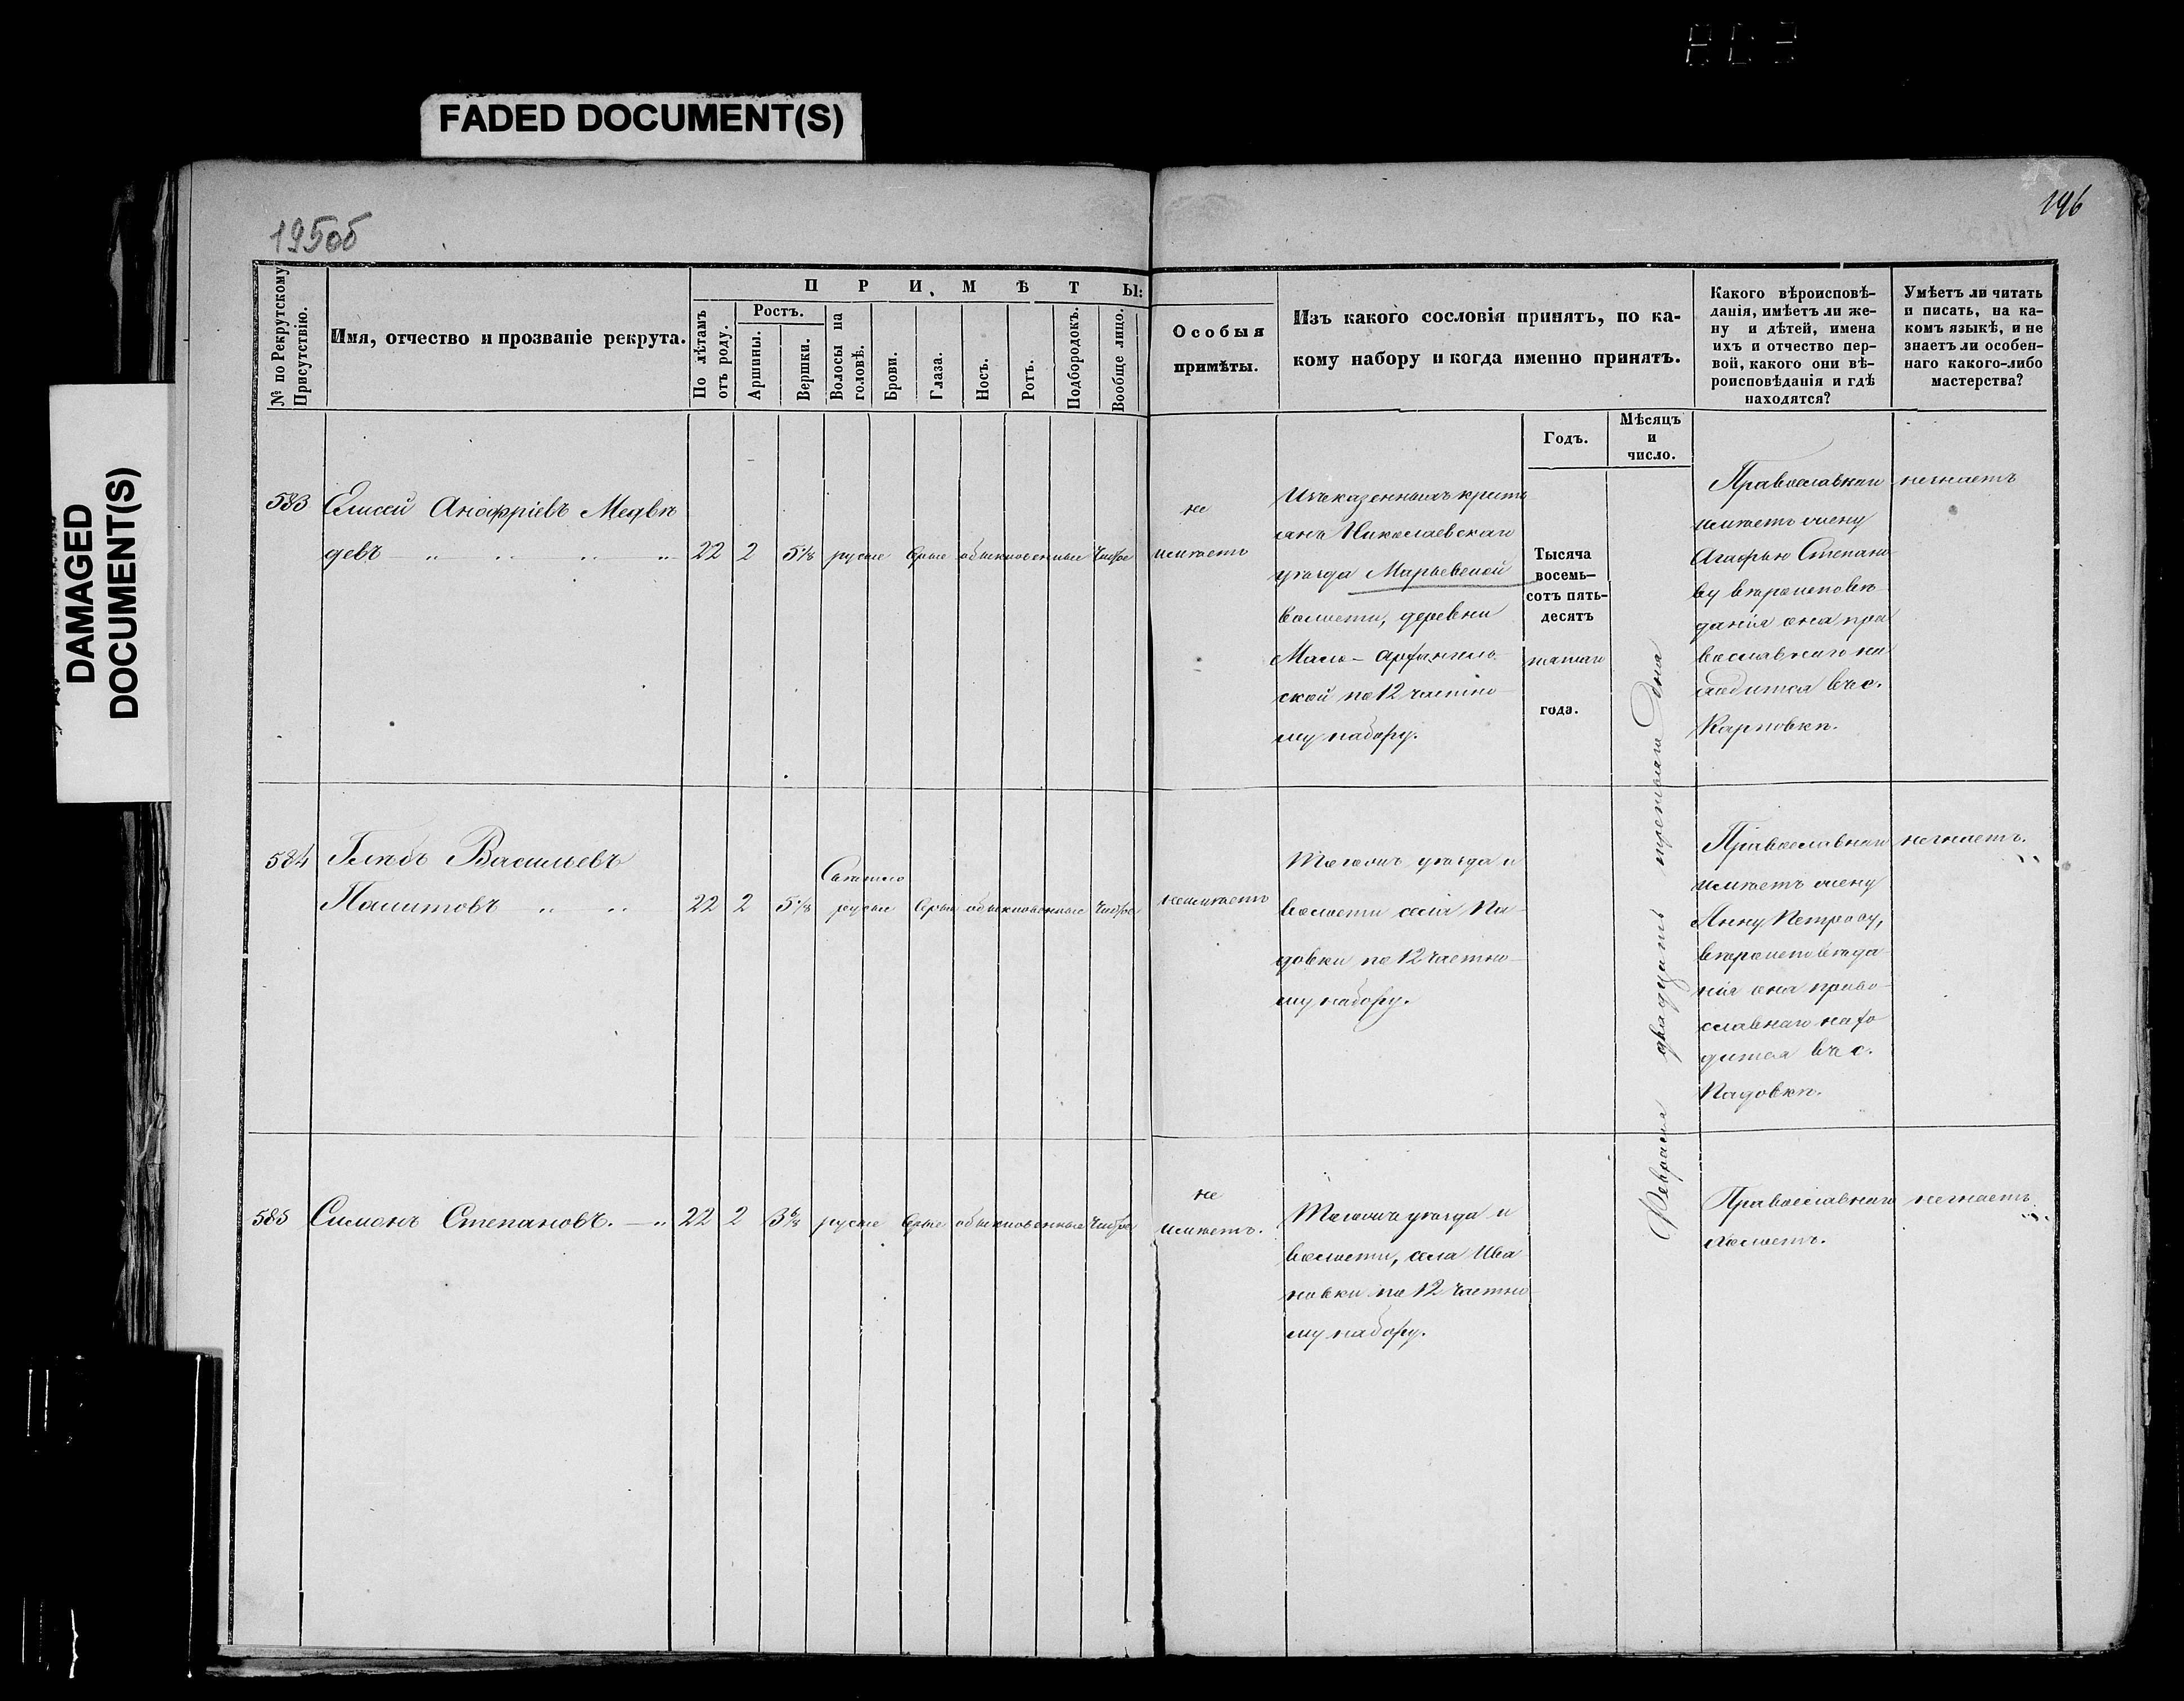 FADED DOCUMENT(S)
DAMAGED
DOCUMENT(S)
195об
196
№ по Рекрутскому
Присутствію.
Имя, отчество и прозваніе рекрута.
ПРИМѢТЫ:
По лѣтамъ
отъ роду.
Ростъ.
Аршины.
Вершки.
Волосы на
головѣ.
Брови.
Глаза.
Носъ.
Ротъ.
Подбородокъ.
Вообще лицо.
Особыя
примѣты.
Изъ какого сословія принятъ, по ка-
кому набору и когда именно принятъ.
Какого вѣроисповѣ-
данія, имѣетъ ли же-
ну и дѣтей, имена
ихъ и отчество пер-
вой, какого они вѣ-
роисповѣданія и гдѣ
находятся?
Умѣетъ ли читать
и писать, на ка-
комъ языкѣ, и не
знаетъ ли особен-
наго какого-либо
мастерства?
Годъ.
Мѣсяцъ
и
число.
583
Елисей Анофріевъ Медвѣ
девъ
22 2 5 1/8 русые сѣрые обыкновенные чистое
не
имѣетъ
Изъ казенныхъ кресть
янъ Николаевскаго
уѣзда Марьевской
волости, деревни
Мало-Архангель
ской по 12 частно
му набору.
Тысяча
восемь-
сотъ пять-
десятъ
пятаго
года.
Февраля двадцать третьяго дня
Православнаго
имѣетъ жену
Агафью Степано
ву вѣроисповѣ
данія она пра
вославнаго на
ходится въ с.
Карповкѣ.
незнаетъ
584
Глѣбъ Васильевъ
Памитовъ
22 2 5 1/8 Свѣтло
русые сѣрые обыкновенные чистое
неимѣетъ
Тогожъ уѣзда и
волости села Па
довки по 12 частно
му набору.
Православнаго
имѣетъ жену
Анну Петрову,
вѣроисповѣда
нія она право
славнаго нахо
дится въ с.
Падовкѣ.
незнаетъ.
585
Симонъ Степановъ.
22 2 3 6/8 русые сѣрые обыкновенные чистое
не
имѣетъ.
Тогожъ уѣзда и
волости, села Ива
новки по 12 частно
му набору.
Православнаго
холостъ.
незнаетъ